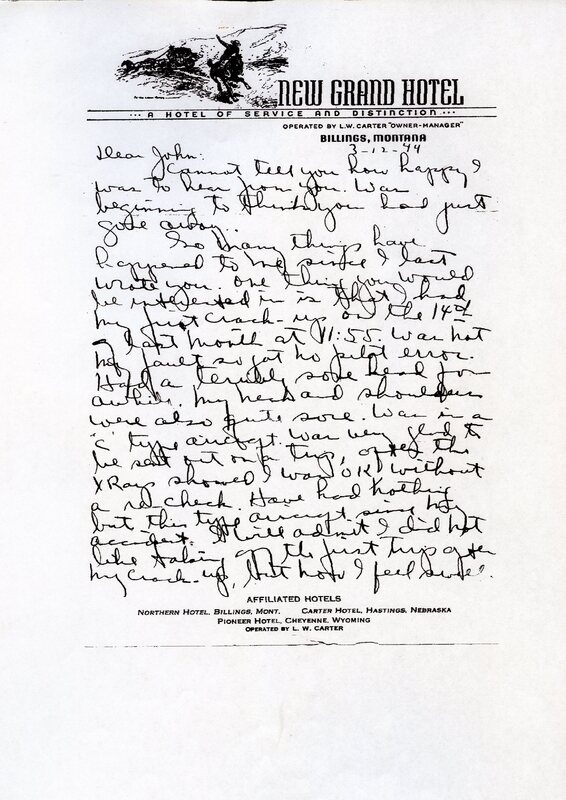 NEW GRAND HOTEL
··· A HOTEL OF SERVICE AND DISTINCTION ···
OPERATED BY L.W. CARTER "OWNER-MANAGER"
BILLINGS, MONTANA
3-12-44
Dear John:
Cannot tell you how happy I
was to hear from you. Was
beginning to think you had just
gone away.
So many things have
happened to me since I last
wrote you. One thing you would
be interested in is that I had
my first crack-up on the 14th
of last month at 11:55. Was not
my fault so got no pilot error.
Had a terribly sore head for
awhile. My neck and shoulders
were also quite sore. Was in a
"C" type aircraft. Was very glad to
be sent out on a trip, after the
XRays showed I was OK, without
a re-check. Have had nothing
but this type aircraft since my
accident. I will admit I did not
like taking off the first trip after
my crack-up, but now I feel
AFFILIATED HOTELS
NORTHERN HOTEL, BILLINGS, MONT. CARTER HOTEL, HASTINGS, NEBRASKA
PIONEER HOTEL, CHEYENNE, WYOMING
OPERATED BY L. W. CARTER